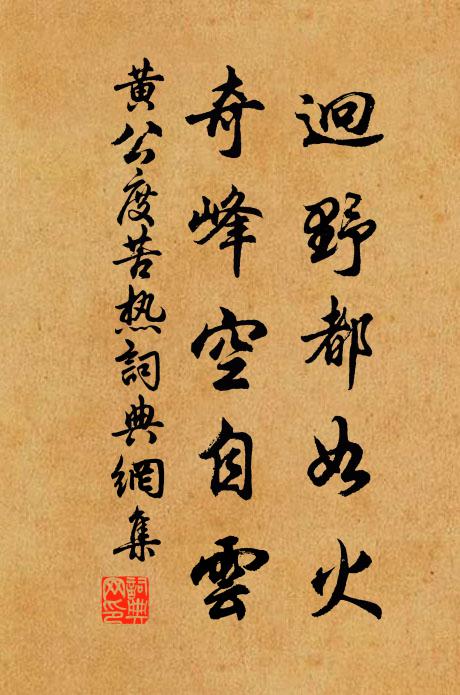 迥野都如火
奇峰空自雲
黃公度苦热詞典網集
詞典網印